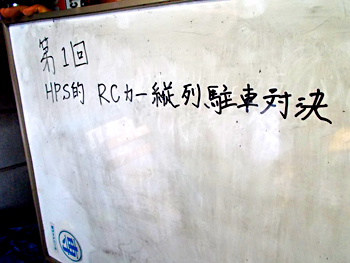 第1回
HPS的 RCカー縦列駐車対決